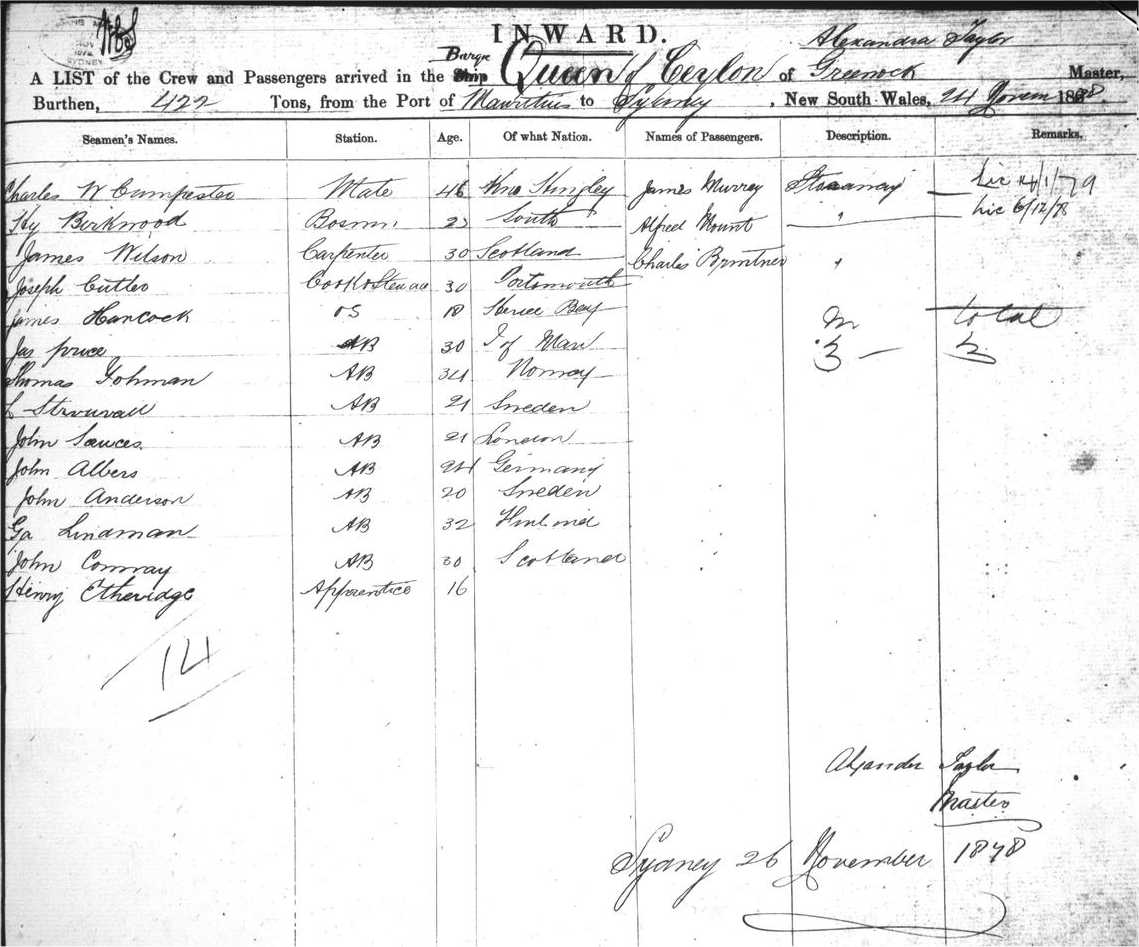 INWARD.
Alexandra Taylor
Barque
A LIST of the Crew and Passengers arrived in the Ship Queen of Ceylon of Greenock Master,
Burthen, 422 Tons, from the Port of Mauritius to Sydney, New South Wales, 24 Novem 1878.
Seamen's Names. Station. Age. Of what Nation. Names of Passengers. Description. Remarks.
Charles W Mate 46 James Murrey Stowaway Lic 14/1/79
Hy Birkwood Bosm. South Alfred Mount " Lic 6/12/78
James Wilson Carpenter 30 Scotland Charles "
Joseph Cutler Cook & Steward 30 Portsmouth
James Hancock OS 18 Herne Bay m total
Jas price AB 30 I of Man 3 — 3
Thomas Gohman AB 34 Norway
L AB 21 Sweden
John Sauces AB 21 London
John Albers AB 24 Germany
John Anderson AB 20 Sweden
Ga Lindman AB 32
John Conway AB 30 Scotland
Henry Etheridge Apprentice 16
14
Alexander Taylor
Master
Sydney 26 November 1878